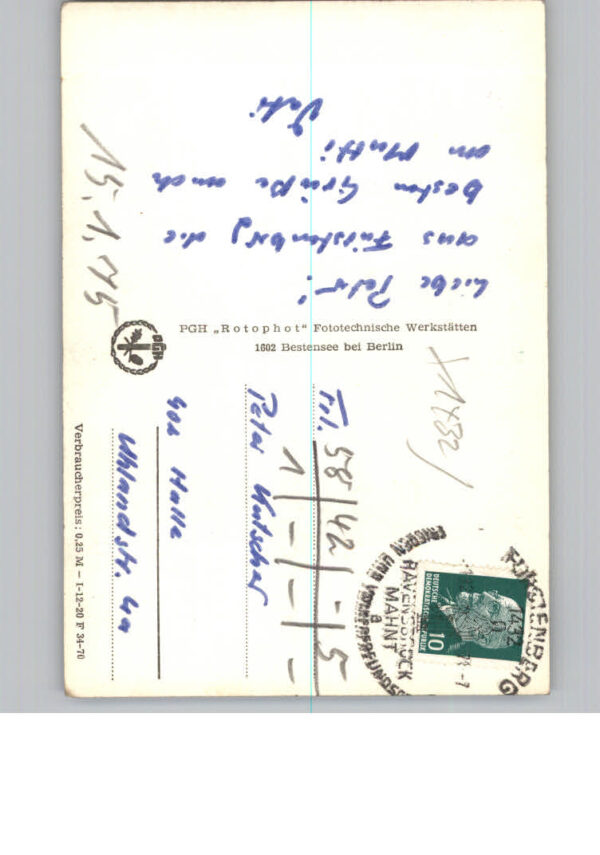 Liebe Petra!
aus Fürstenberg die
besten Grüße auch
an Mutti
Vati
15.1.75
PGH
PGH „Rotophot“ Fototechnische Werkstätten
1602 Bestensee bei Berlin
Frl.
Petra Kutscher
402 Halle
Uhlandstr. 4a
58/42/-15
1/-/-/-
Verbraucherpreis: 0,25 M – I-12-20 F 34-70
DEUTSCHE
DEMOKRATISCHE REPUBLIK
10
FÜRSTENBERG
1432
RAVENSBRÜCK
MAHNT
a
FRIEDEN UND